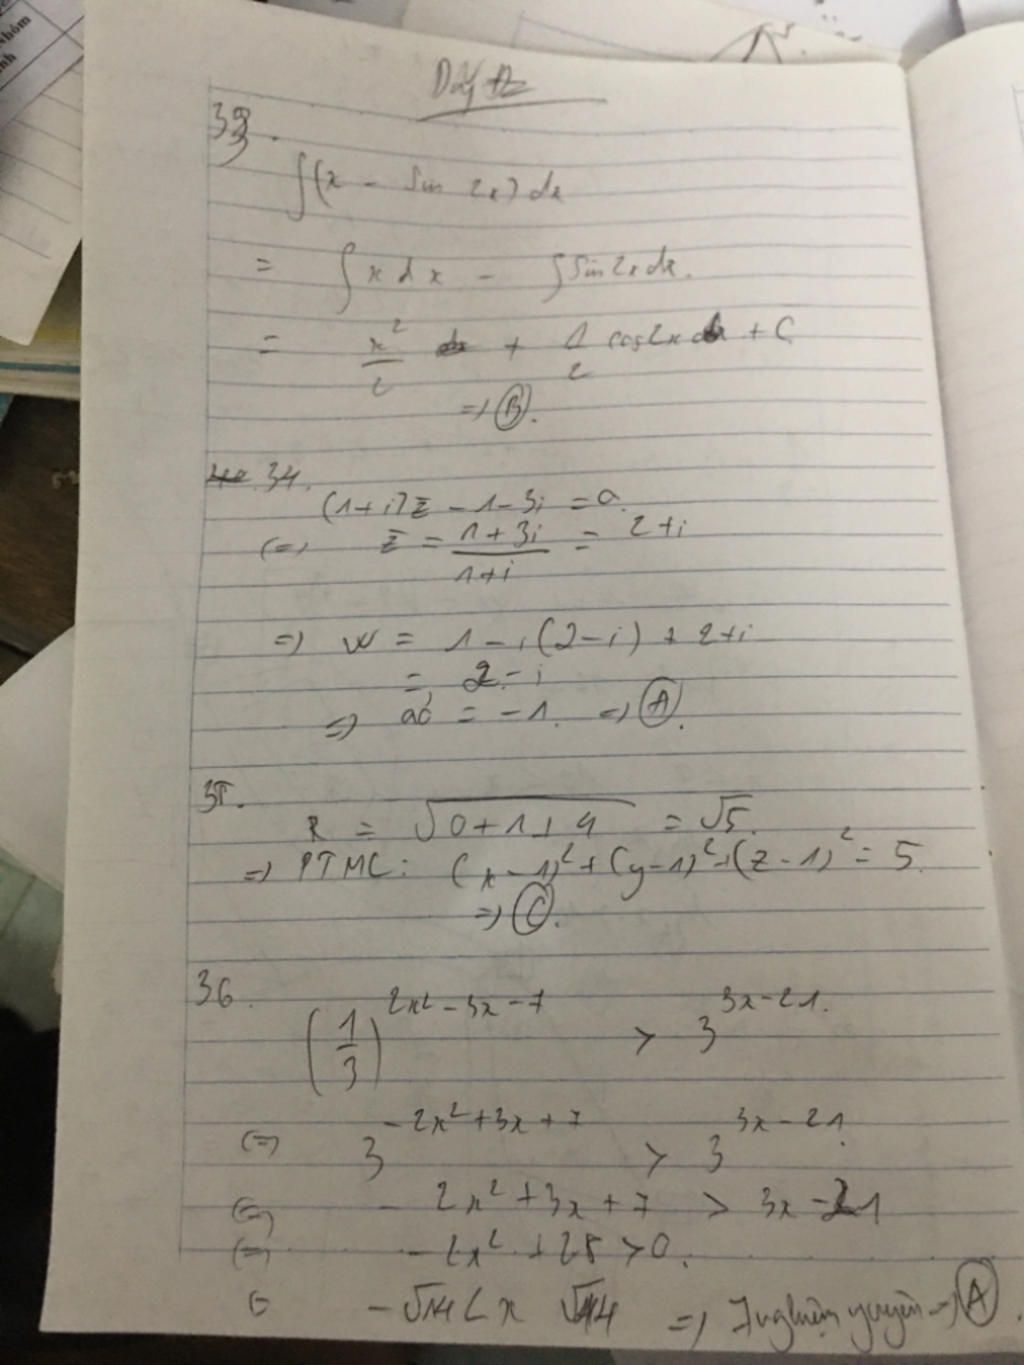 33.
∫(x - sin 2x) dx
= ∫ x dx - ∫ sin 2x dx.
= x²/2 + 1/2 cos 2x + C
=> B.
34.
(1+i)z̄ - 1 - 3i = 0
(=) z̄ = (1+3i)/(1+i) = 2+i
=> w = 1 - i(2-i) + 2+i
= 2 - i
=> ảo = -1. => A.
35.
R = √(0+1+4) = √5.
=> PTMC: (x-1)² + (y-1)² + (z-1)² = 5.
=> C.
36.
(1/3)^(2x²-3x-7) > 3^(3x-21).
(=) 3^(-2x²+3x+7) > 3^(3x-21).
(=) -2x²+3x+7 > 3x-21
(=) -2x²+28 > 0.
-√14 < x √14 => 7 nghiệm nguyên => A.